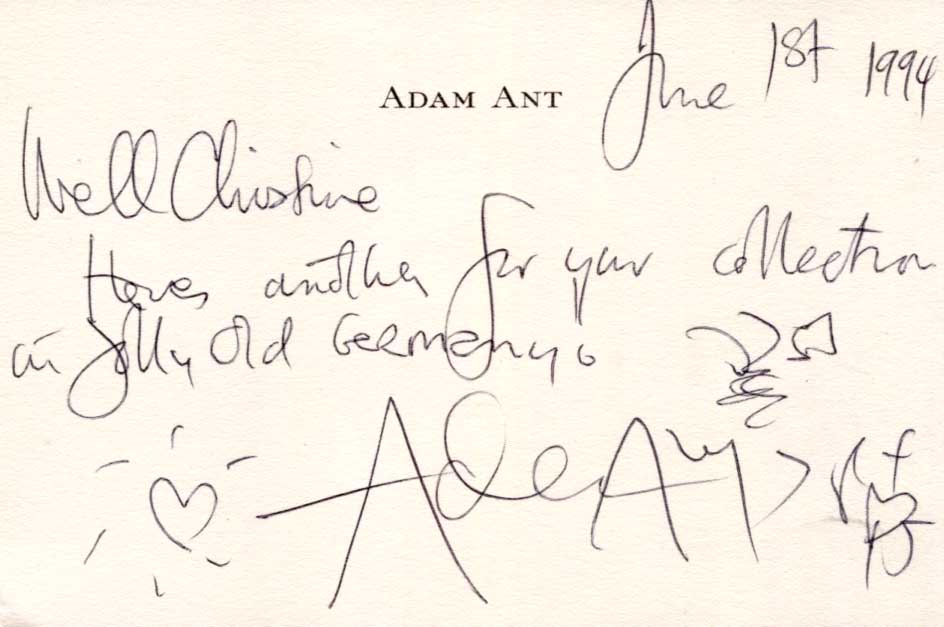 June 1st 1994
ADAM ANT
Well Christine
Heres another for your collection
in jolly old Germany.
Adam Ant